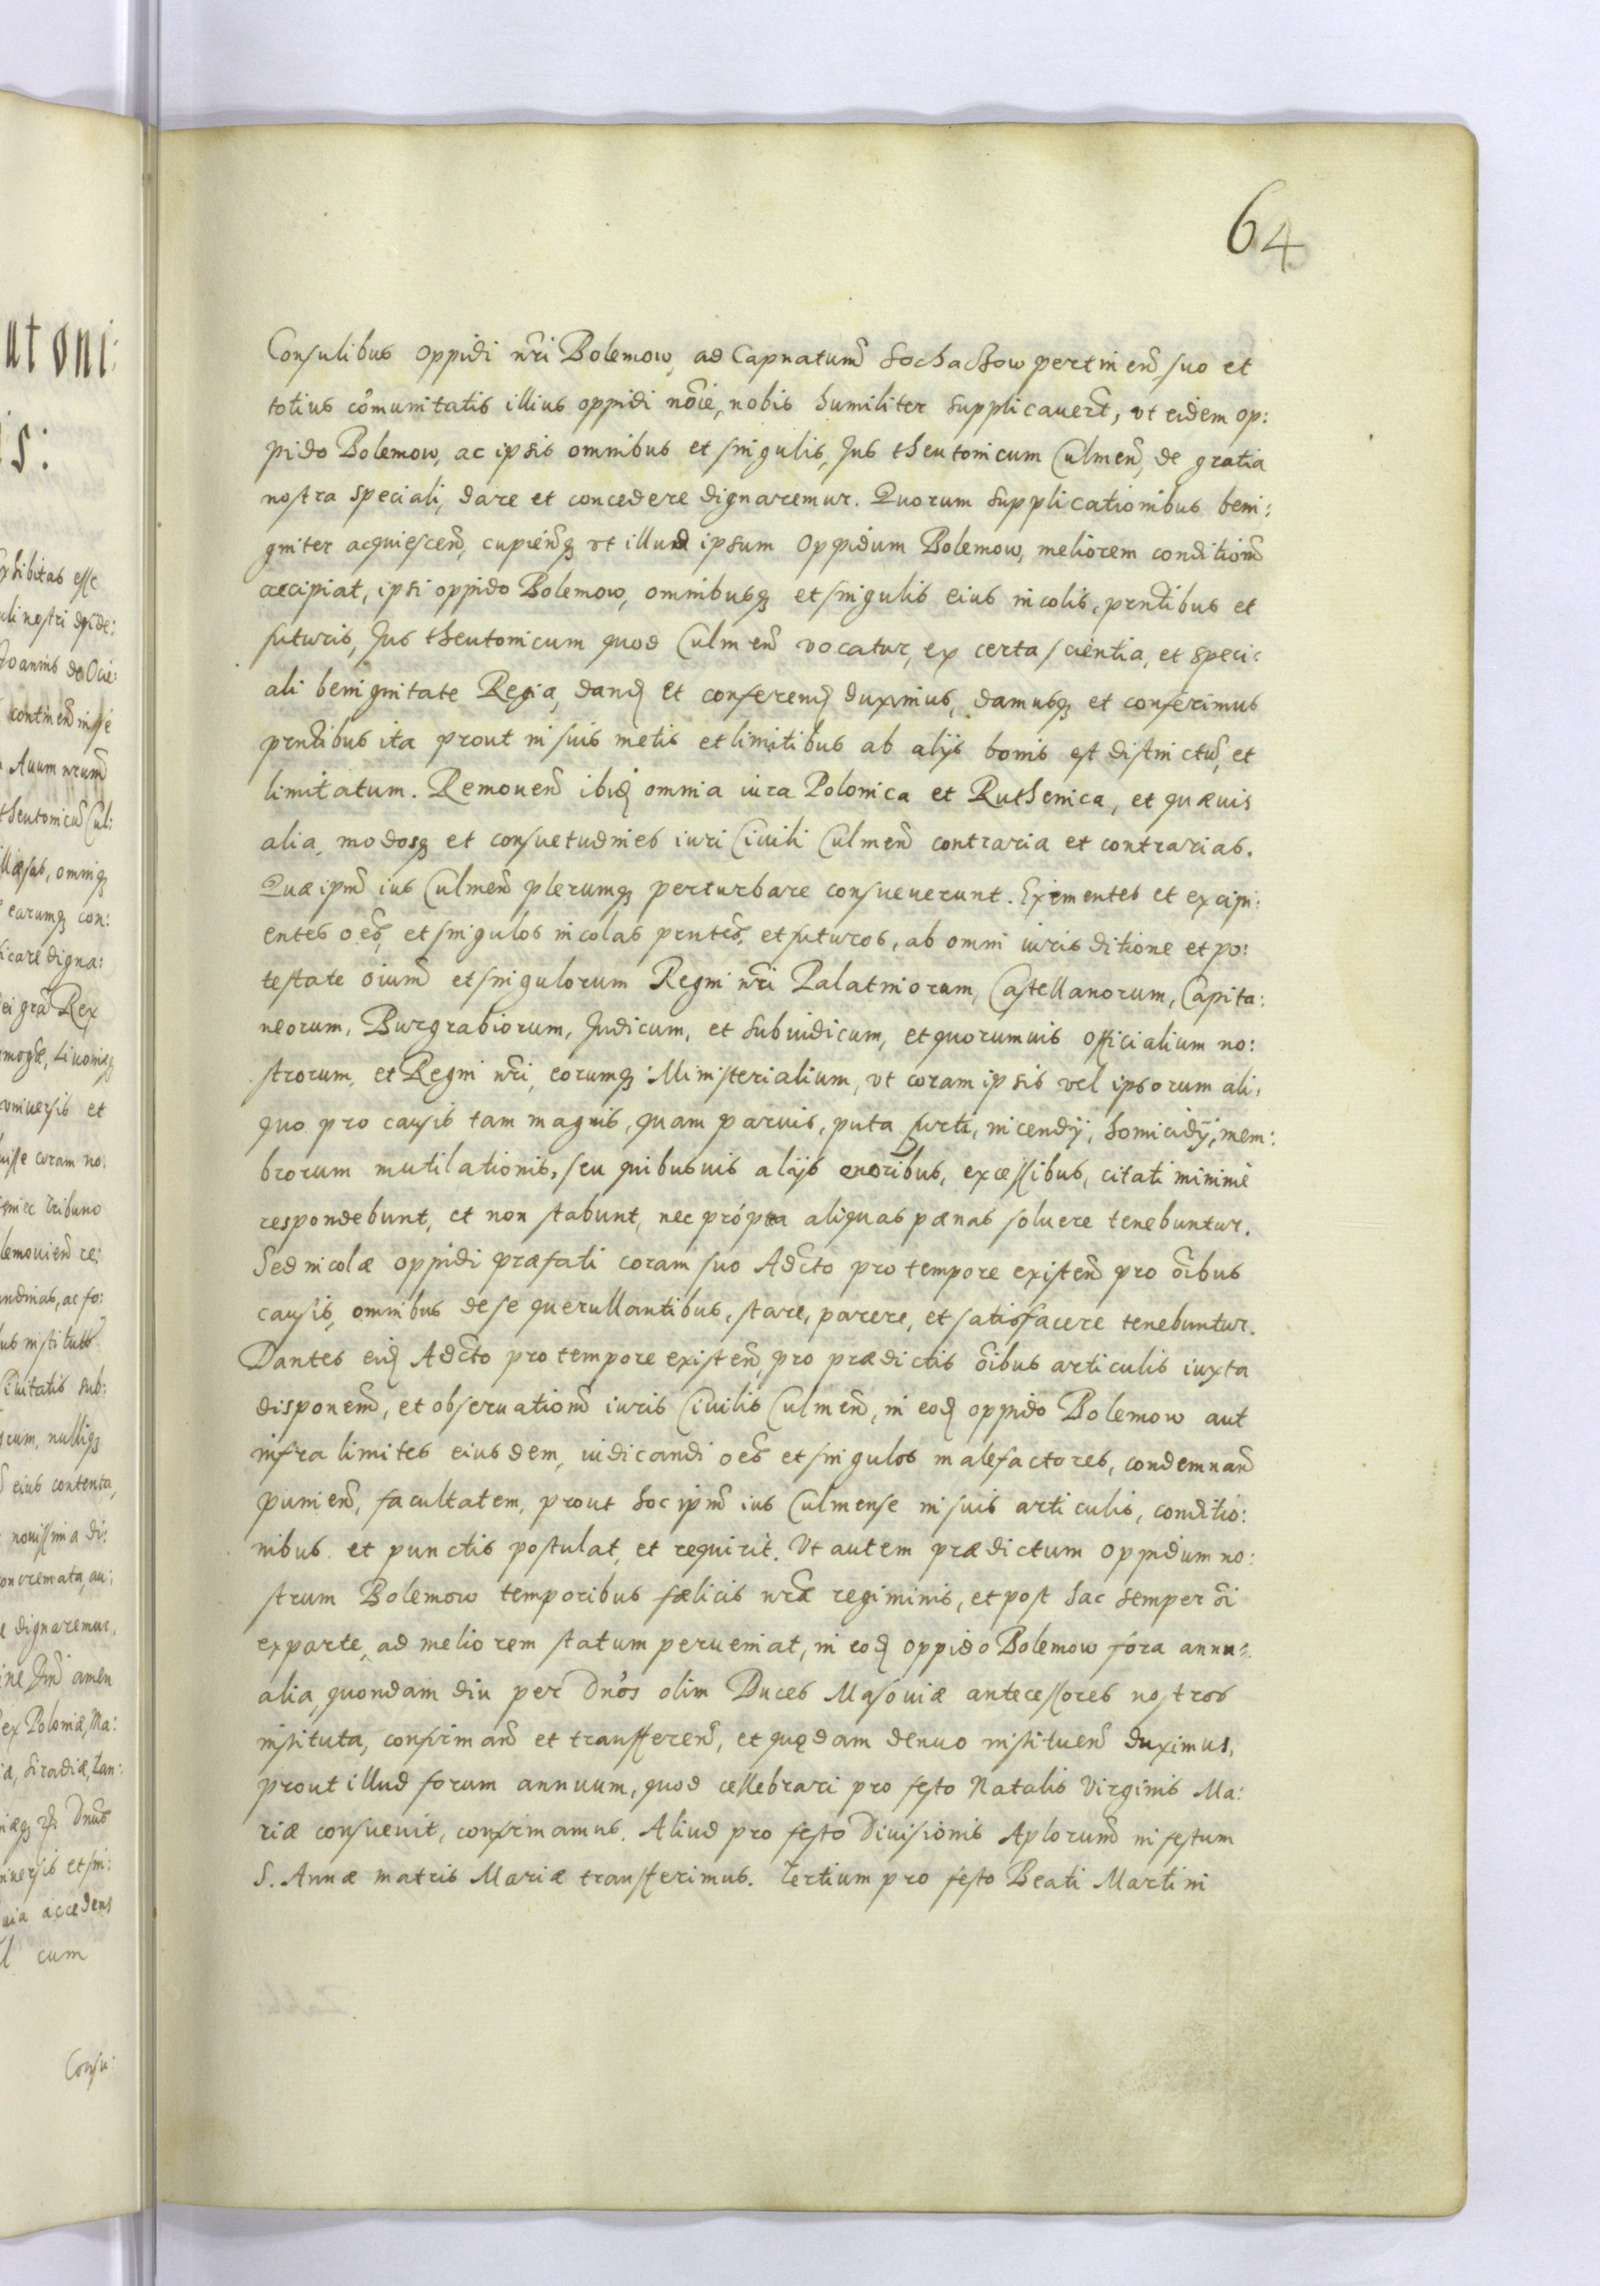 64
Consulibus oppidi nr̃i Bolemow, ad Capnatum̃ Sochaczow pertinen̄, suo et
totius cõmunitatis illius oppidi nõie, nobis humiliter supplicauerũt, vt eidem op:
pido Bolemow, ac ipsis omnibus et singulis, Jus theutonicum Culmen̄, de gratia
nostra speciali, dare et concedere dignaremur. Quorum supplicationibus beni:
gniter acquiescen̄, cupien̄q3 vt illud ipsum Oppidum Bolemow, meliorem conditiom̄
accipiat, ipsi oppido Bolemow, omnibusq3 et singulis eius incolis, prntibus et
futuris, Jus theutonicum quod Culmen̄ vocatur, ex certa scientia, et speci:
ali benignitate Regia, dand et conferend duximus, damusq3 et conferimus
prntibus ita prout in suis metis et limitibus ab alijs bonis est distinctũ, et
limitatum. Remouen̄ ibid omnia iura Polonica et Ruthenica, et quæuis
alia, modosq3 et consuetudines iuri Ciuili Culmen̄ contraria et contrarias.
Quæ ipm̄ ius Culmen̄ plerumq3 perturbare consueuerunt. Eximentes et excipi:
entes oẽs, et singulos incolas prntẽs, et futuros, ab omni iurisditione et po:
testate oium̃ et singulorum Regni nr̃i Palatinorum, Castellanorum, Capita:
neorum, Burgrabiorum, Judicum, et Subiudicum, et quorumuis officialium no:
strorum, et Regni nr̃i, eorumq3 Ministerialium, vt coram ipsis vel ipsorum ali:
quo pro causis tam magnis, quam paruis, puta furti, incendij, homicidij, mem:
brorum mutilationis, seu quibusuis alijs enoribus, excessibus, citati minimè
respondebunt, et non stabunt, nec própta aliquas pænas soluere tenebuntur.
Sed incolæ oppidi præfati coram suo Adcto pro tempore existen̄ pro õibus
causis, omnibus de se querullantibus, stare, parere, et satisfacere tenebuntur.
Dantes eid Adcto pro tempore existen̄, pro prædictis õibus articulis iuxta
disponem̄, et obseruationm̄ iuris Ciuilis Culmen̄, in eod oppido Bolemow aut
infra limites eiusdem, iudicandi oẽs et singulos malefactores, condemnan̄
punien̄, facultatem, prout hoc ipm̄ ius Culmense in suis articulis, conditio:
nibus et punctis postulat, et requirit. Vt autem prædictum oppidum no:
strum Bolemow temporibus fælicis nr̃æ regiminis, et post hac semper õi
ex parte, ad meliorem statum perueniat, in eod oppido Bolemow fora annu:
alia, quondam diu per Dnõs olim Duces Masouiæ antecessores nostros
instituta, confirman̄ et transferen̄, et quędam denuo instituen̄ duximus,
prout illud forum annuum, quod cellebrari pro festo Natalis Virginis Ma:
riæ consueuit, confirmamus. Aliud pro festo Diuisionis Aplorum̃ in festum
S. Annæ matris Mariæ transferimus. Tertium pro festo Beati Martini
ut oni:
is:
exhibitas esse
Joannis de Ocie:
Auum nrum̃
theutonicũ Cul:
illæsas, omniq3
earumq3 con:
icare digna:
ei gr̃a Rex
Liuoniæq3
vniuersis et
uisse coram no:
Tribuno
lemouien̄ re:
ndinas, ac fo:
Ciuitatis sub:
cum, nulliq3
eius contenta,
nouissima di:
oncremata, au:
e dignaremur,
ine Dni amen
ex Poloniæ, Ma:
iæ, Siradiæ, Lan:
niuersis et sin:
uia accedens
l cum
Consu: